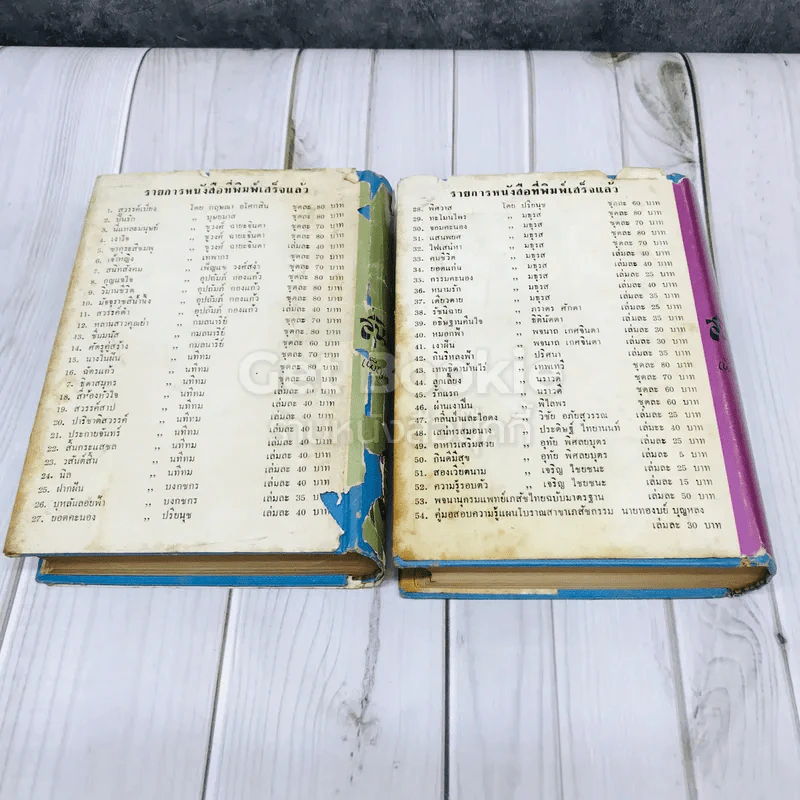 รายการหนังสือที่พิมพ์เสร็จแล้ว
1. สวรรค์เบี่ยง โดย กฤษณา อโศกสิน ชุดละ 80 บาท
2. ปั้นรัก ,, บุษยมาส ชุดละ 80 บาท
3. นี่แหละมนุษย์ ,, ชูวงศ์ ฉายะจินดา ชุดละ 70 บาท
4. เงาใจ ,, ชูวงศ์ ฉายะจินดา ชุดละ 80 บาท
5. ,, ชูวงศ์ ฉายะจินดา เล่มละ 40 บาท
6. เจ้าหญิง ,, เทพากร ชุดละ 70 บาท
7. สนิทสังคม ,, เพ็ญแข วงศ์สง่า ชุดละ 70 บาท
8. กุญแจใจ ,, อุปถัมภ์ กองแก้ว ชุดละ 80 บาท
9. วิมานชีวิต ,, อุปถัมภ์ กองแก้ว ชุดละ 80 บาท
10. มัจจุราชสีน้ำผึ้ง ,, อุปถัมภ์ กองแก้ว ชุดละ 80 บาท
11. สวรรค์ดำ ,, อุปถัมภ์ กองแก้ว เล่มละ 40 บาท
12. หลานสาวคุณย่า ,, กมลนารีย์ ชุดละ 80 บาท
13. ชมมนัส ,, กมลนารีย์ ชุดละ 80 บาท
14. ศัตรูคู่สร้าง ,, กมลนารีย์ ชุดละ 60 บาท
15. นางในฝัน ,, นทีทม ชุดละ 70 บาท
16. ฉัตรแก้ว ,, นทีทม เล่มละ 40 บาท
17. ธิดาสมุทร ,, นทีทม เล่มละ 40 บาท
18. สี่ห้องหัวใจ ,, นทีทม เล่มละ 40 บาท
19. สวรรค์สาป ,, นทีทม เล่มละ 40 บาท
20. ปาริชาติสวรรค์ ,, นทีทม เล่มละ 40 บาท
21. ประกายจันทร์ ,, นทีทม เล่มละ 40 บาท
22. สันกระแสชล ,, นทีทม เล่มละ 40 บาท
23. วสันต์สิ้น ,, นทีทม เล่มละ 40 บาท
24. นิล ,, นทีทม เล่มละ 40 บาท
25. ฝากฝัน ,, บงกชกร เล่มละ 40 บาท
26. บุหลันลอยฟ้า ,, บงกชกร เล่มละ 35 บ
27. ยอดคะนอง ,, ปริยนุช เล่มละ 40 บาท
รายการหนังสือที่พิมพ์เสร็จแล้ว
28. พิศวาส โดย ปริยนุช ชุดละ 60 บาท
29. ทะโมนไพร ,, มธุรส ชุดละ 80 บาท
30. จอมคะนอง ,, มธุรส ชุดละ 80 บาท
31. แสนพยศ ,, มธุรส ชุดละ 70 บาท
32. ไฟเสน่หา ,, มธุรส ชุดละ 70 บาท
33. คนชีวิต ,, มธุรส เล่มละ 40 บาท
34. ยอดแก่น ,, มธุรส เล่มละ 40 บาท
35. กรรมคะนอง ,, มธุรส เล่มละ 25 บาท
36. หนามรัก ,, มธุรส เล่มละ 40 บาท
37. เดียวดาย ,, มธุรส เล่มละ 35 บาท
38. รัชนีฉาย ,, ภราดร ศักดา เล่มละ 25 บาท
39. อธิษฐานคืนใจ ,, ธิตินัดดา เล่มละ 35 บาท
40. หมอกฟ้า ,, พจนาถ เกศจินดา เล่มละ 40 บาท
41. เงาฝัน ,, พจนาถ เกศจินดา เล่มละ 35 บาท
42. กินรีหลงฟ้า ,, ปริศนา เล่มละ 30 บาท
43. เทพธิดาบ้านไร่ ,, เทพเทวี ชุดละ 80 บาท
44. ลูกเลี้ยง ,, นราวดี ชุดละ 70 บาท
45. รักแรก ,, นราวดี ชุดละ 60 บาท
46. ผ่านเงาปืน ,, พิไลพร ชุดละ 60 บาท
47. กลิ่นปืนและไอดง ,, วิชัย อภัยสุวรรณ เล่มละ 25 บาท
48. เสน่ห์รสมือนาง ,, ประดิษฐ์ ไทยานนท์ เล่มละ 40 บาท
49. อาหารเสริมสวย ,, อุทัย พิศลยบุตร เล่มละ 25 บาท
50. กินดีมีสุข ,, อุทัย พิศลยบุตร เล่มละ 5 บาท
51. สองเวียตนาม ,, เจริญ ไชยชนะ เล่มละ 25 บาท
52. ความรู้รอบตัว ,, เจริญ ไชยชนะ เล่มละ 15 บาท
53. พจนานุกรมแพทย์เภสัชไทยฉบับมาตรฐาน เล่มละ 50 บาท
54. คู่มือสอบความรู้แผนโบราณสาขาเภสัชกรรม นายทองบย์ บุญหลง
เล่มละ 30 บาท